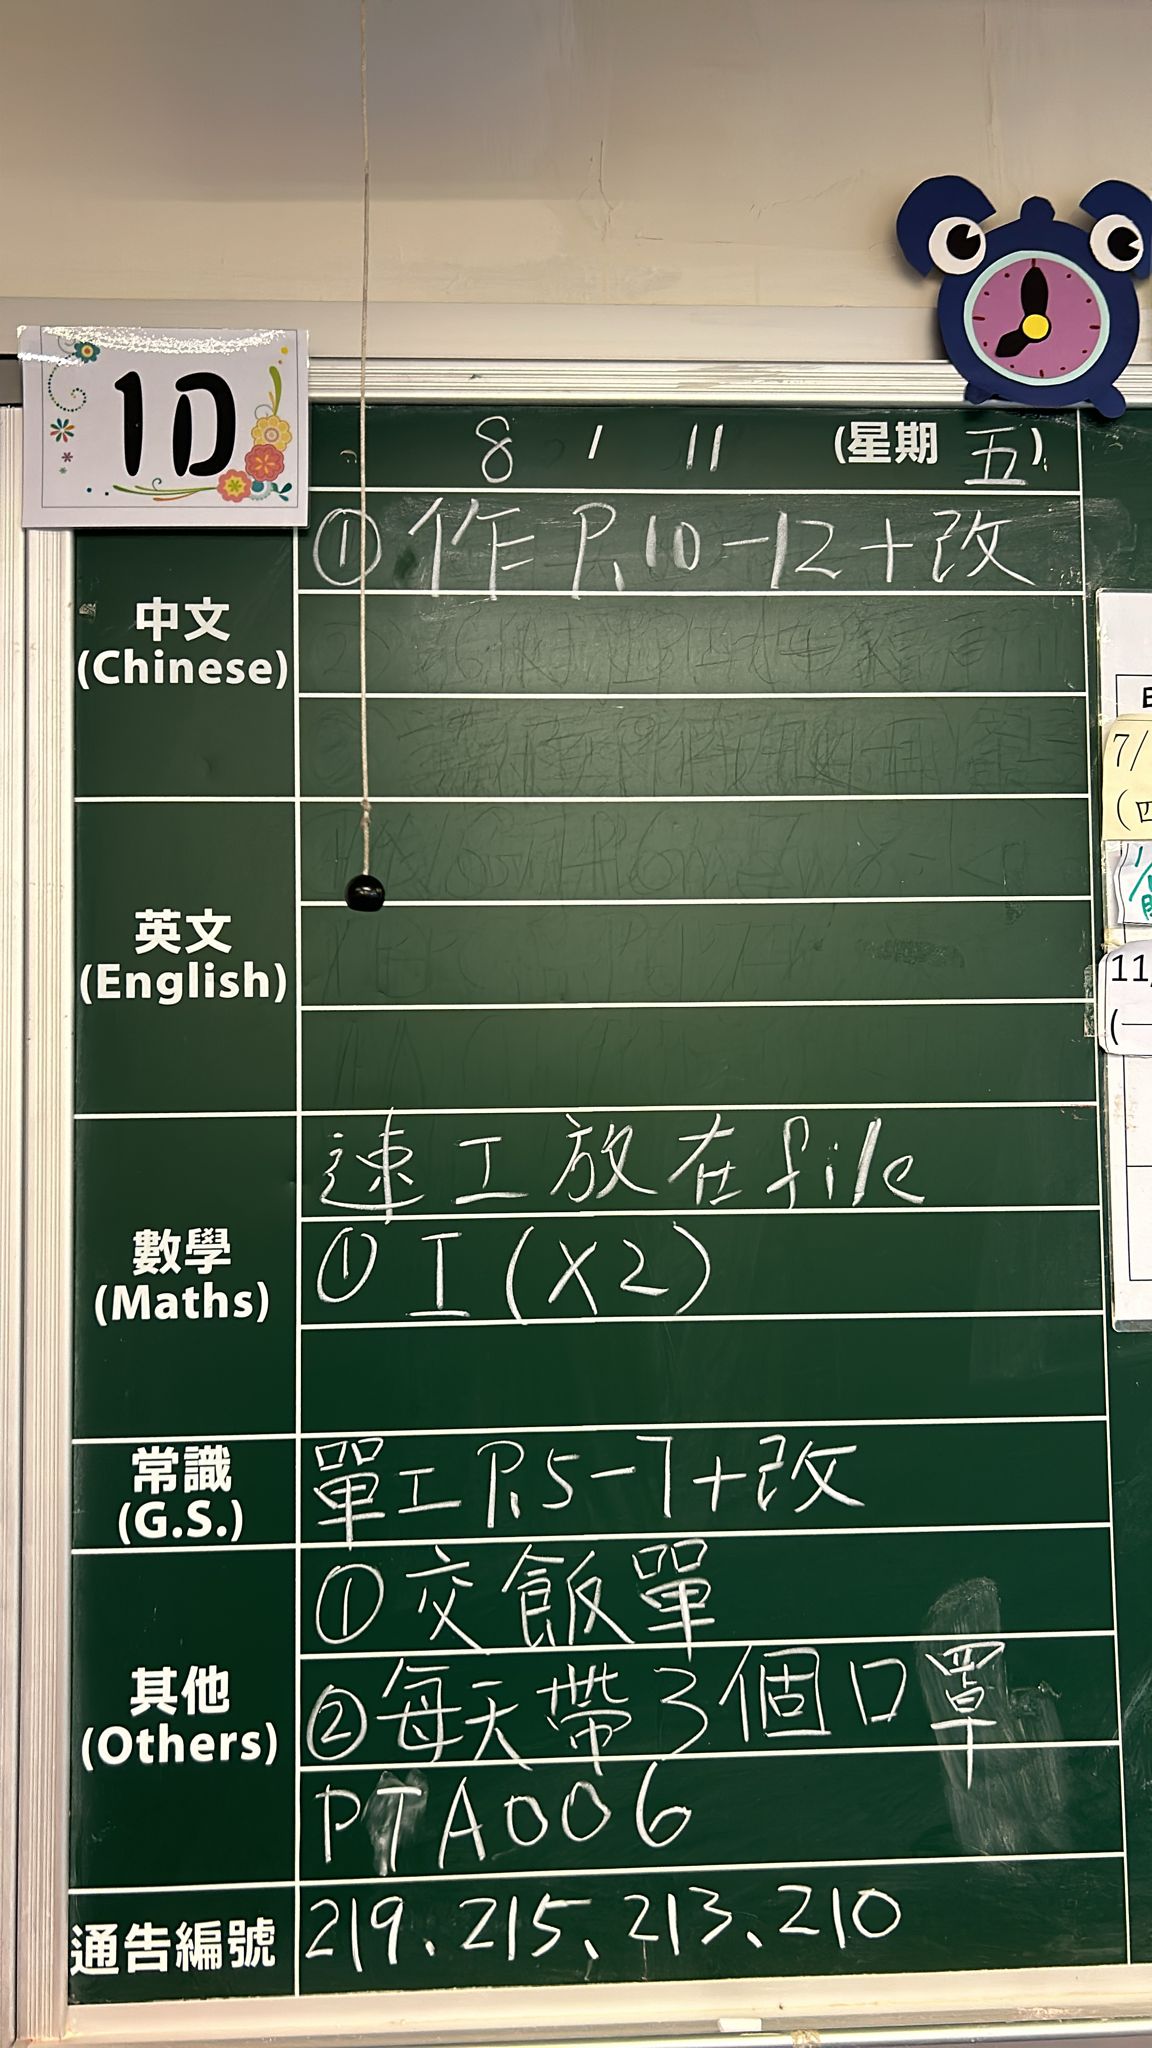 1D
8 / 11 (星期 五)
中文
(Chinese)
① 作 P.10-12+改
英文
(English)
數學
(Maths)
速工放在file
① 工(×2)
常識
(G.S.)
單工 P.5-7+改
其他
(Others)
① 交飯單
② 每天帶3個口罩
PTA006
通告編號
219、215、213、210
7/
(四
11/
(一